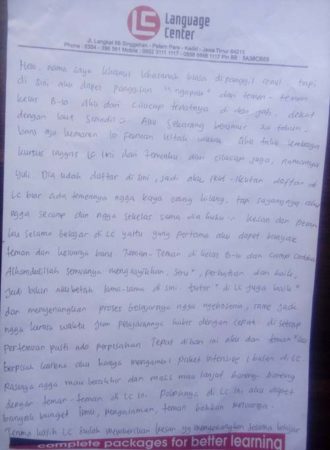 LC Language Center
Jl. Langkat
Singgahan - Pelem Pare - Kediri - Jawa Timur 64213
Phone : 0354 -
PIN BB : 5A3BC6E5
nama saya Khusnul Khotimah biasa dipanggil tapi
di sini aku dapet panggilan "ngapak" dari teman - teman
kelas B-10 aku dari Cilacap tepatnya di desa
dekat
dengan laut
Aku sekarang berumur 20 tahun.
baru aja kemaren 10 Februari
Aku tahu lembaga
kursus inggris LC ini dari temenku dari cilacap juga, namanya
Dia udah daftar di sini, jadi aku ikut-ikutan daftar di
LC biar ada temennya ngga kaya orang hilang. tapi sayangnya aku
ngga secamp dan ngga sekelas sama dia
Kesan dan pesan
ku selama belajar di LC yaitu yang pertama aku dapet banyak
teman dan keluarga baru. Teman-Teman di kelas B-10 dan camp
Alhamdulillah semuanya mengasyikkan, seru", perhatian dan baik".
Jadi bikin aku betah lama-lama di sini. tutor" di LC juga baik"
dan menyenangkan proses belajarnya ngga ngebosenin, rame jadi
ngga kerasa waktu jam pelajarannya habis dengan cepat. di setiap
pertemuan pasti ada perpisahan Tapi hari ini aku dan teman" ku
berpisah karena aku hanya mengambil paket intensive 1 bulan di LC
Rasanya ngga mau berakhir dan masih mau lanjut bareng-bareng
dengan teman-teman di LC ini. Pokoknya di LC ini aku dapet
banyak banget ilmu, pengalaman, teman bahkan keluarga.
Terima kasih LC sudah memberikan kesan yg menyenangkan selama belajar
complete packages for better learning